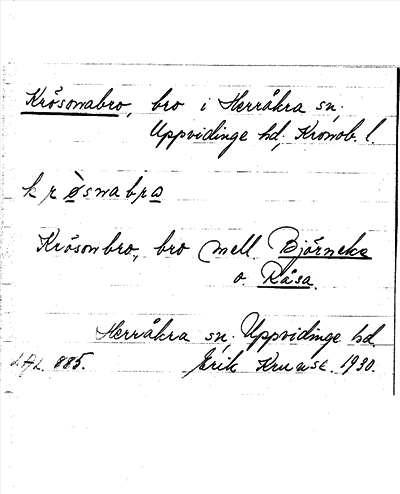 Krösonabro, bro i Herråkra sn,
Uppvidinge hd, Kronob. l.
krøsnabra
Krösonbro, bro mell. Björneka
o. Råsa.
Herråkra sn, Uppvidinge hd.
LAL. 885. Erik Kruuse. 1930.